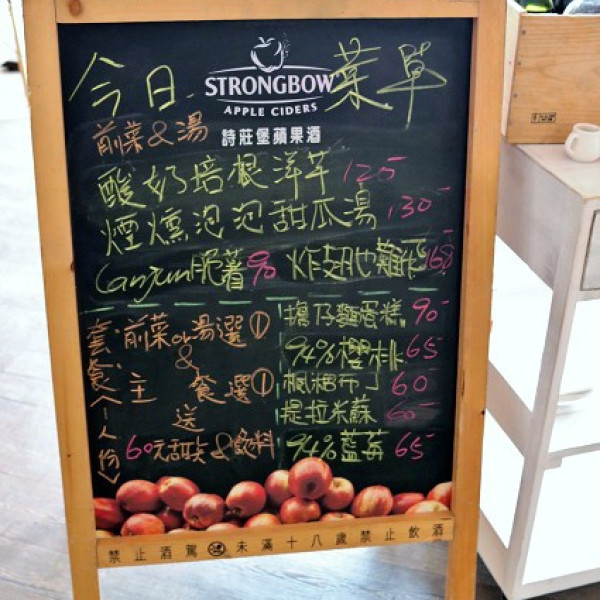 今日菜單
STRONGBOW
APPLE CIDERS
詩莊堡蘋果酒
前菜&湯
酸奶培根洋芋 125-
煙燻泡泡甜瓜湯 130-
Canjun脆薯 90 炸翅 雞 168
套餐(一人份)
前菜or湯選①
&
主 食選①
送
60元甜点&飲料
擔仔麵蛋糕 90-
94%櫻桃 65-
楓糖布丁 60
提拉米蘇 60-
94%藍莓 65-
禁止酒駕 未滿十八歲禁止飲酒